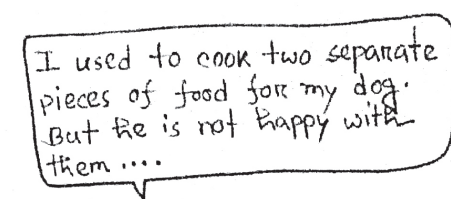 I used to cook two separate
pieces of food for my dog.
But he is not happy with
them ....